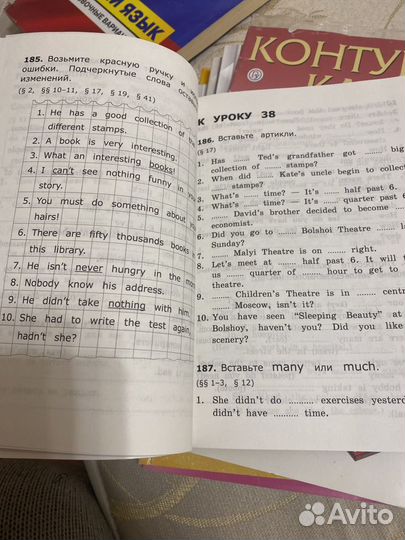 Й ЯЗЫК
ОЧНЫЕ ВАРИАН
КОНТУ
КА
185. Возьмите красную ручку и
ошибки. Подчеркнутые слова
изменений.
(§ 2, §§ 10–11, § 17, § 19, § 41)
1. He has a good collection of
different stamps.
2. A book is very interesting.
3. What an interesting books!
4. I can't see nothing funny in
story.
5. You must do something about
hairs!
6. There are fifty thousands books
this library.
7. He isn't never hungry in the
8. Nobody know his address.
9. He didn't take nothing with him.
10. She had to write the test again,
hadn't she?
К УРОКУ 38
186. Вставьте артикли.
(§ 17)
1. Has ........ Ted's grandfather got ........ big
collection of ........ stamps?
2. When did ........ Kate's uncle begin to collect
........ stamps?
3. What's ........ time? — It's ........ half past 6.
4. What's ........ time? — It's ........ quarter past
5. ........ David's brother decided to become
economist.
6. Did you go to ........ Bolshoi Theatre
Sunday?
7. ........ Malyi Theatre is on ........ right.
8. Let's meet at ........ half past 6. It will
us ........ quarter of ........ hour to get to
theatre.
9. ........ Children's Theatre is in ........ centr
Moscow, isn't it?
10. You have seen "Sleeping Beauty" at
Bolshoy, haven't you? Did you like
scenery?
187. Вставьте many или much.
(§§ 1–3, § 12)
1. She didn't do ........ exercises yesterd
didn't have ........ time.
Avito